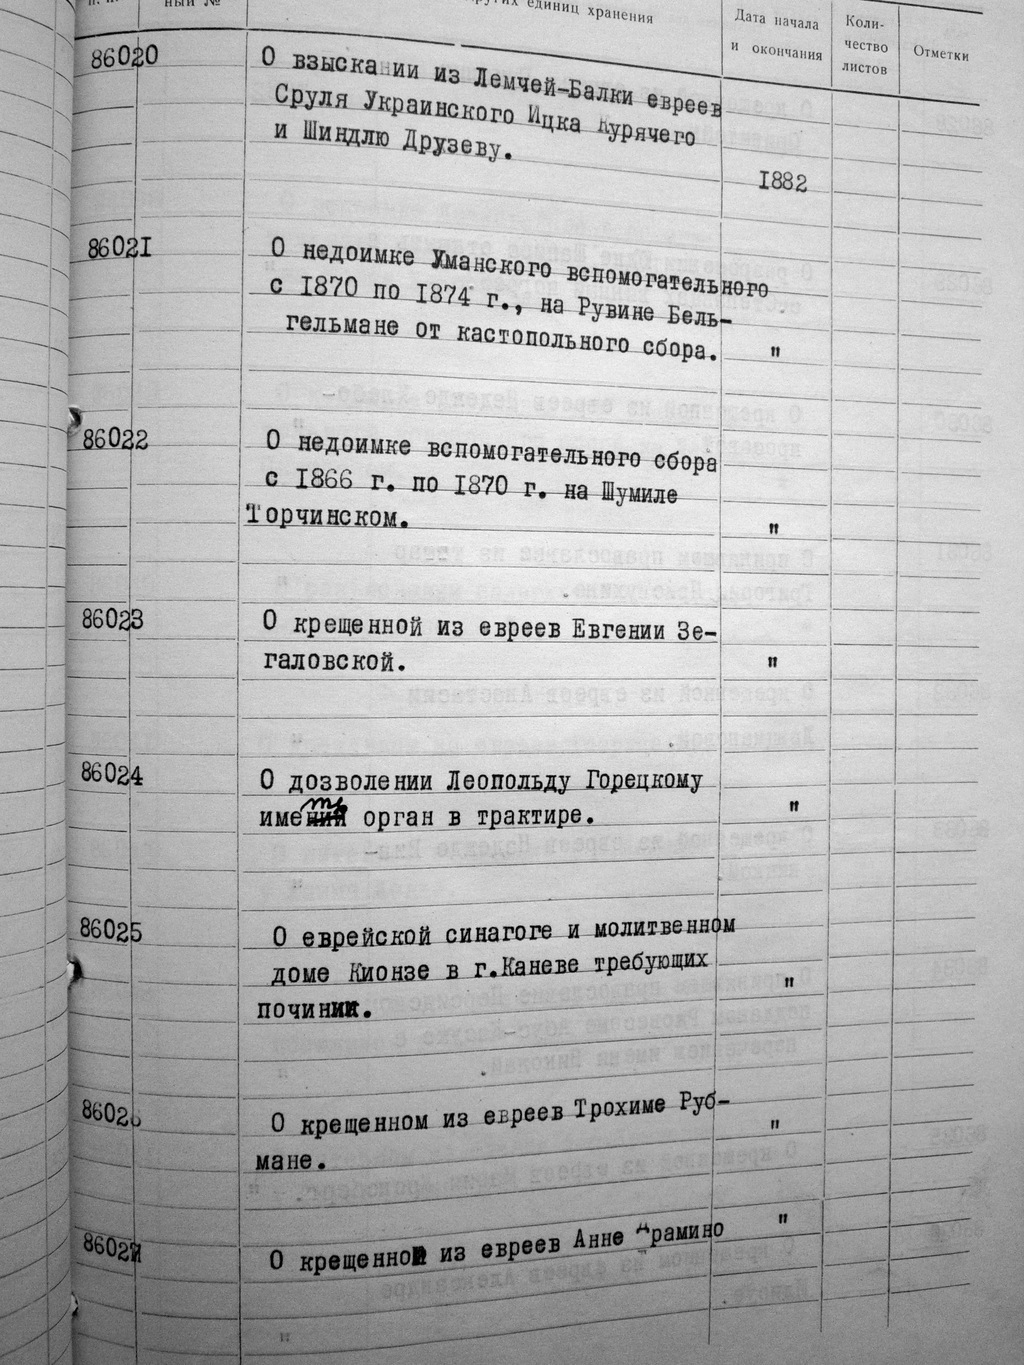 ный №
других единиц хранения
Дата начала
и окончания
Коли-
чество
листов
Отметки
86020
О взыскании из Лемчей-Балки евреев
Сруля Украинского Ицка Курячего
и Шиндлю Друзеву.
1882
86021
О недоимке Уманского вспомогательного
с 1870 по 1874 г., на Рувине Бель-
гельмане от кастопольного сбора.
"
86022
О недоимке вспомогательного сбора
с 1866 г. по 1870 г. на Шумиле
Торчинском.
"
86023
О крещенной из евреев Евгении Зе-
галовской.
"
86024
О дозволении Леопольду Горецкому
иметь орган в трактире.
"
86025
О еврейской синагоге и молитвенном
доме Кионзе в г.Каневе требующих
починки.
"
86026
О крещенном из евреев Трохиме Руб-
мане.
"
86027
О крещенной из евреев Анне
"